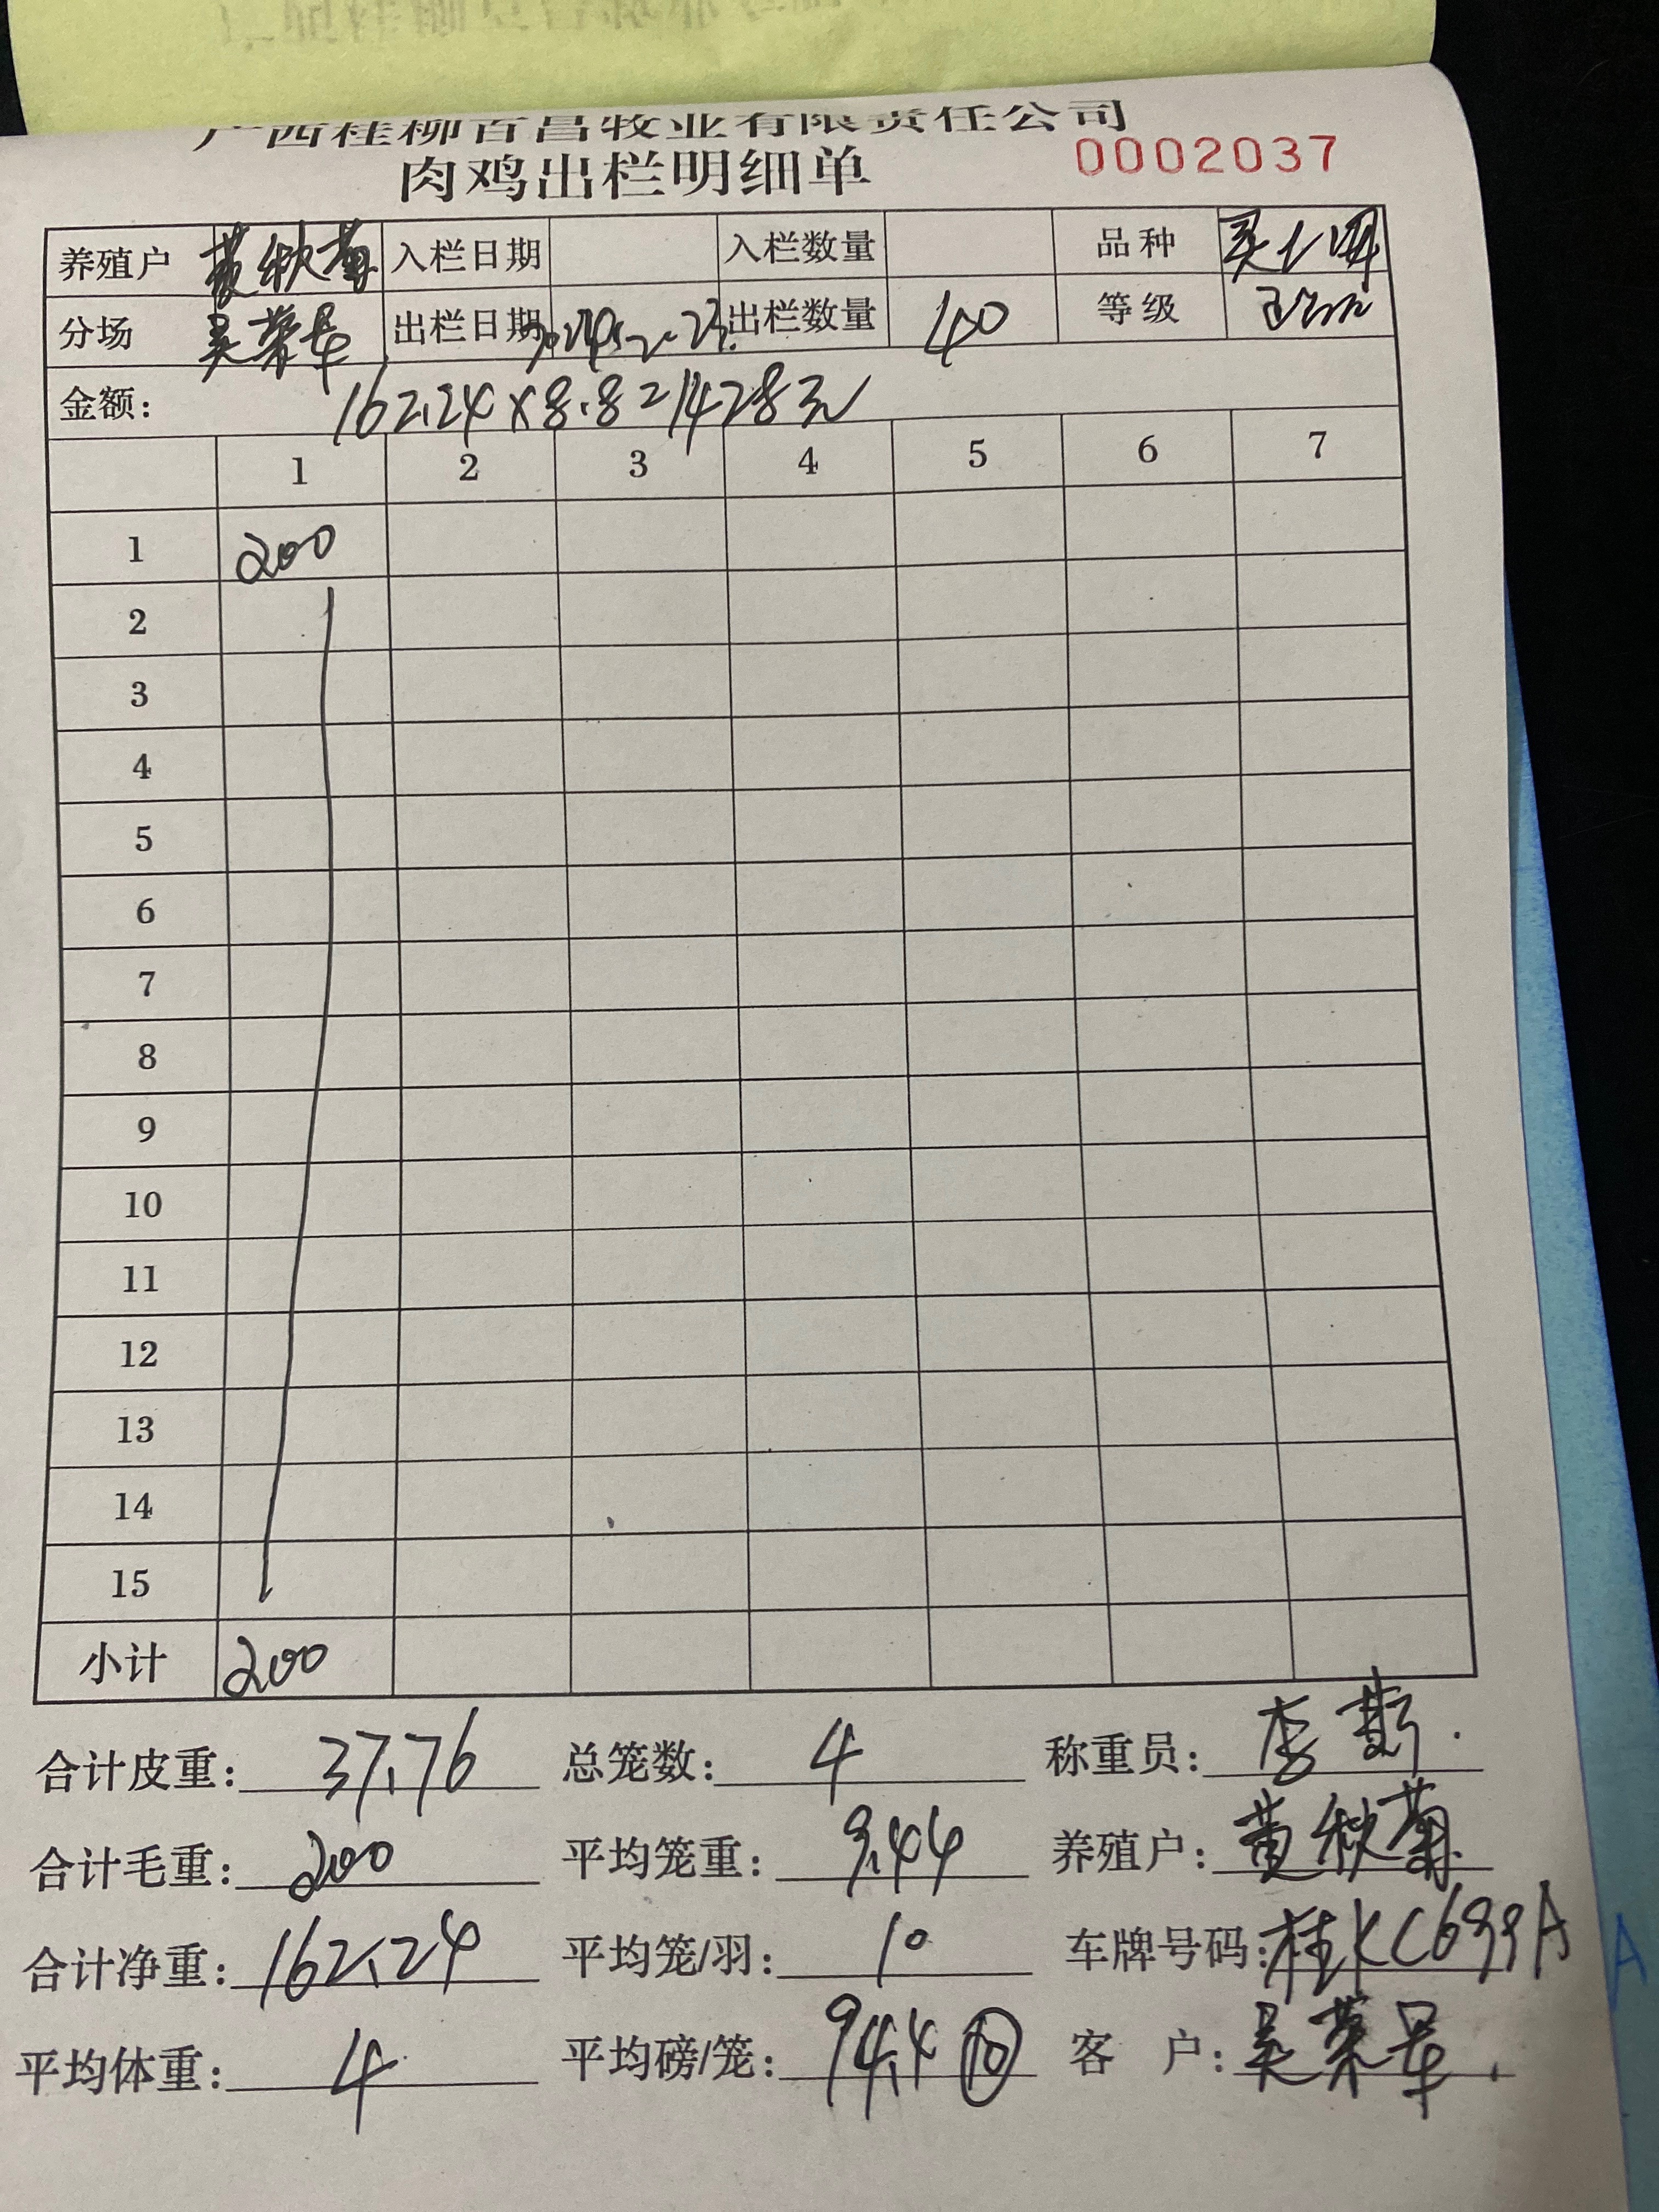 广西桂柳百昌牧业有限责任公司
肉鸡出栏明细单 0002037
养殖户 黄秋菊 入栏日期 入栏数量 品种
分场 吴荣军 出栏日期 出栏数量 40 等级
金额: 162.24×8.8=1428元
1 2 3 4 5 6 7
1 200
2
3
4
5
6
7
8
9
10
11
12
13
14
15
小计 200
合计皮重: 37.76 总笼数: 4 称重员: 李
合计毛重: 200 平均笼重: 9.44 养殖户: 黄秋菊
合计净重: 162.24 平均笼/羽: 10 车牌号码: 桂KC699A
平均体重: 4 平均磅/笼: 94.4 10 客 户: 吴荣军
A